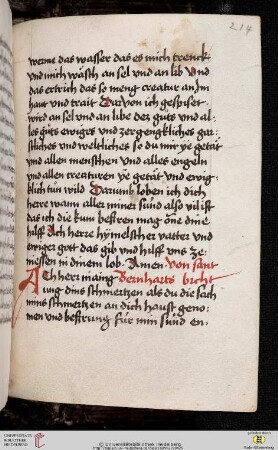 214
werme das wasser das es mich trenck
vnd mich wäsch an sel vnd an lib Vnd
das ertrich das so meng creatur an Im
haut vnd trait Dar von ich gespiset
wird an sel vnd an libe dez gůts vnd al-
les gůts ewigs vnd zergengkliches gai-
stliches vnd weltliches so du mir ye getät
vnd allen menschen vnd alles engeln
vnd allen creaturen ye getät vnd ewig-
klich tun wild Darumb loben ich dich
herre wann aller miner sünd also vil ist
das ich die kum bestren mag one dine
hilff Ach herre hymelscher vatter vnd
ewiger gott das gib vnd hilff vns ze
messen in dinem lob Amen Von sant
Ach herr maing Bernharts bicht
ung dins schmertzen als du die sach
mins schmertzen an dich haust geno-
men vnd bestrung für min sünd en
UNIVERSITÄTS-
BIBLIOTHEK
HEIDELBERG
© Universitätsbibliothek Heidelberg